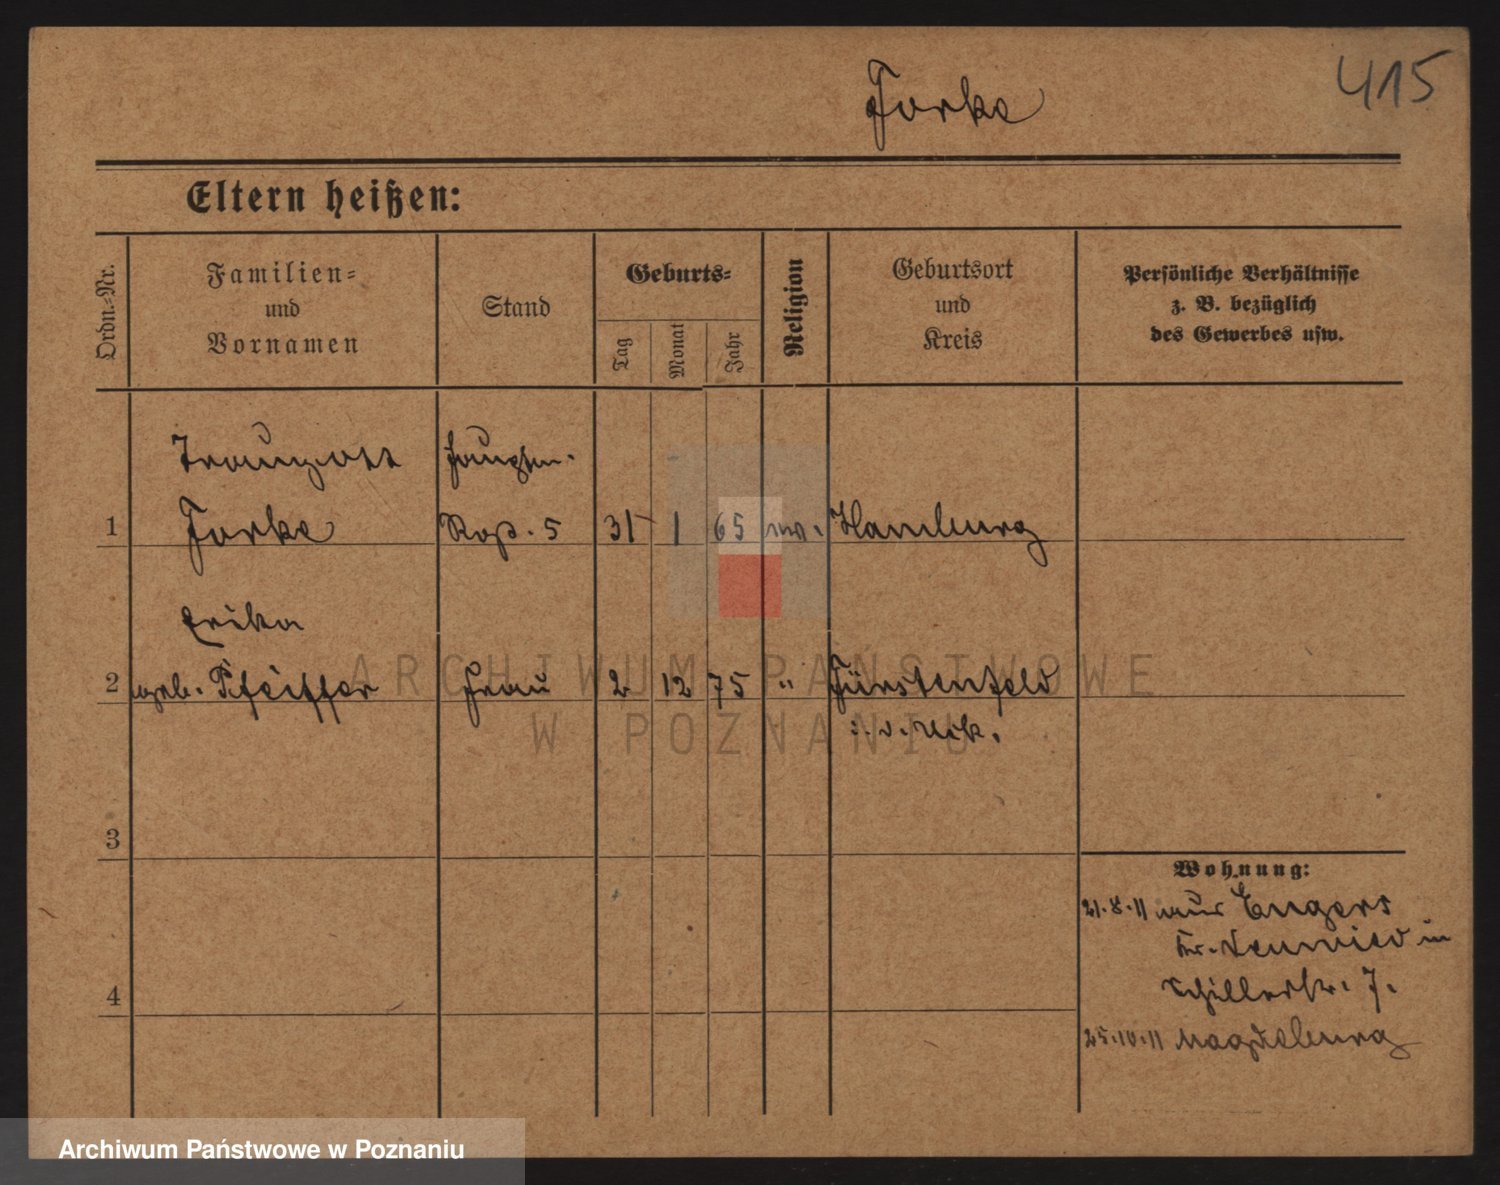 Forke
415
Eltern heißen:
Ordn.-Nr.
Familien-
und
Vornamen
Stand
Geburts-
Tag
Monat
Jahr
Religion
Geburtsort
und
Kreis
Persönliche Verhältnisse
z. B. bezüglich
des Gewerbes usw.
Traugott Hauptm.
1 Forke 5 31 1 65 Hamburg
Erika
2 geb. Pfeiffer Frau 2 12 75 " Fürstenfeld
3
4
Wohnung:
21.8.11 aus Engers
Kr. Neuwied in
Schillerstr. 7.
25.10.11 Magdeburg
ARCHIWUM PAŃSTWOWE
W POZNANIU
Archiwum Państwowe w Poznaniu